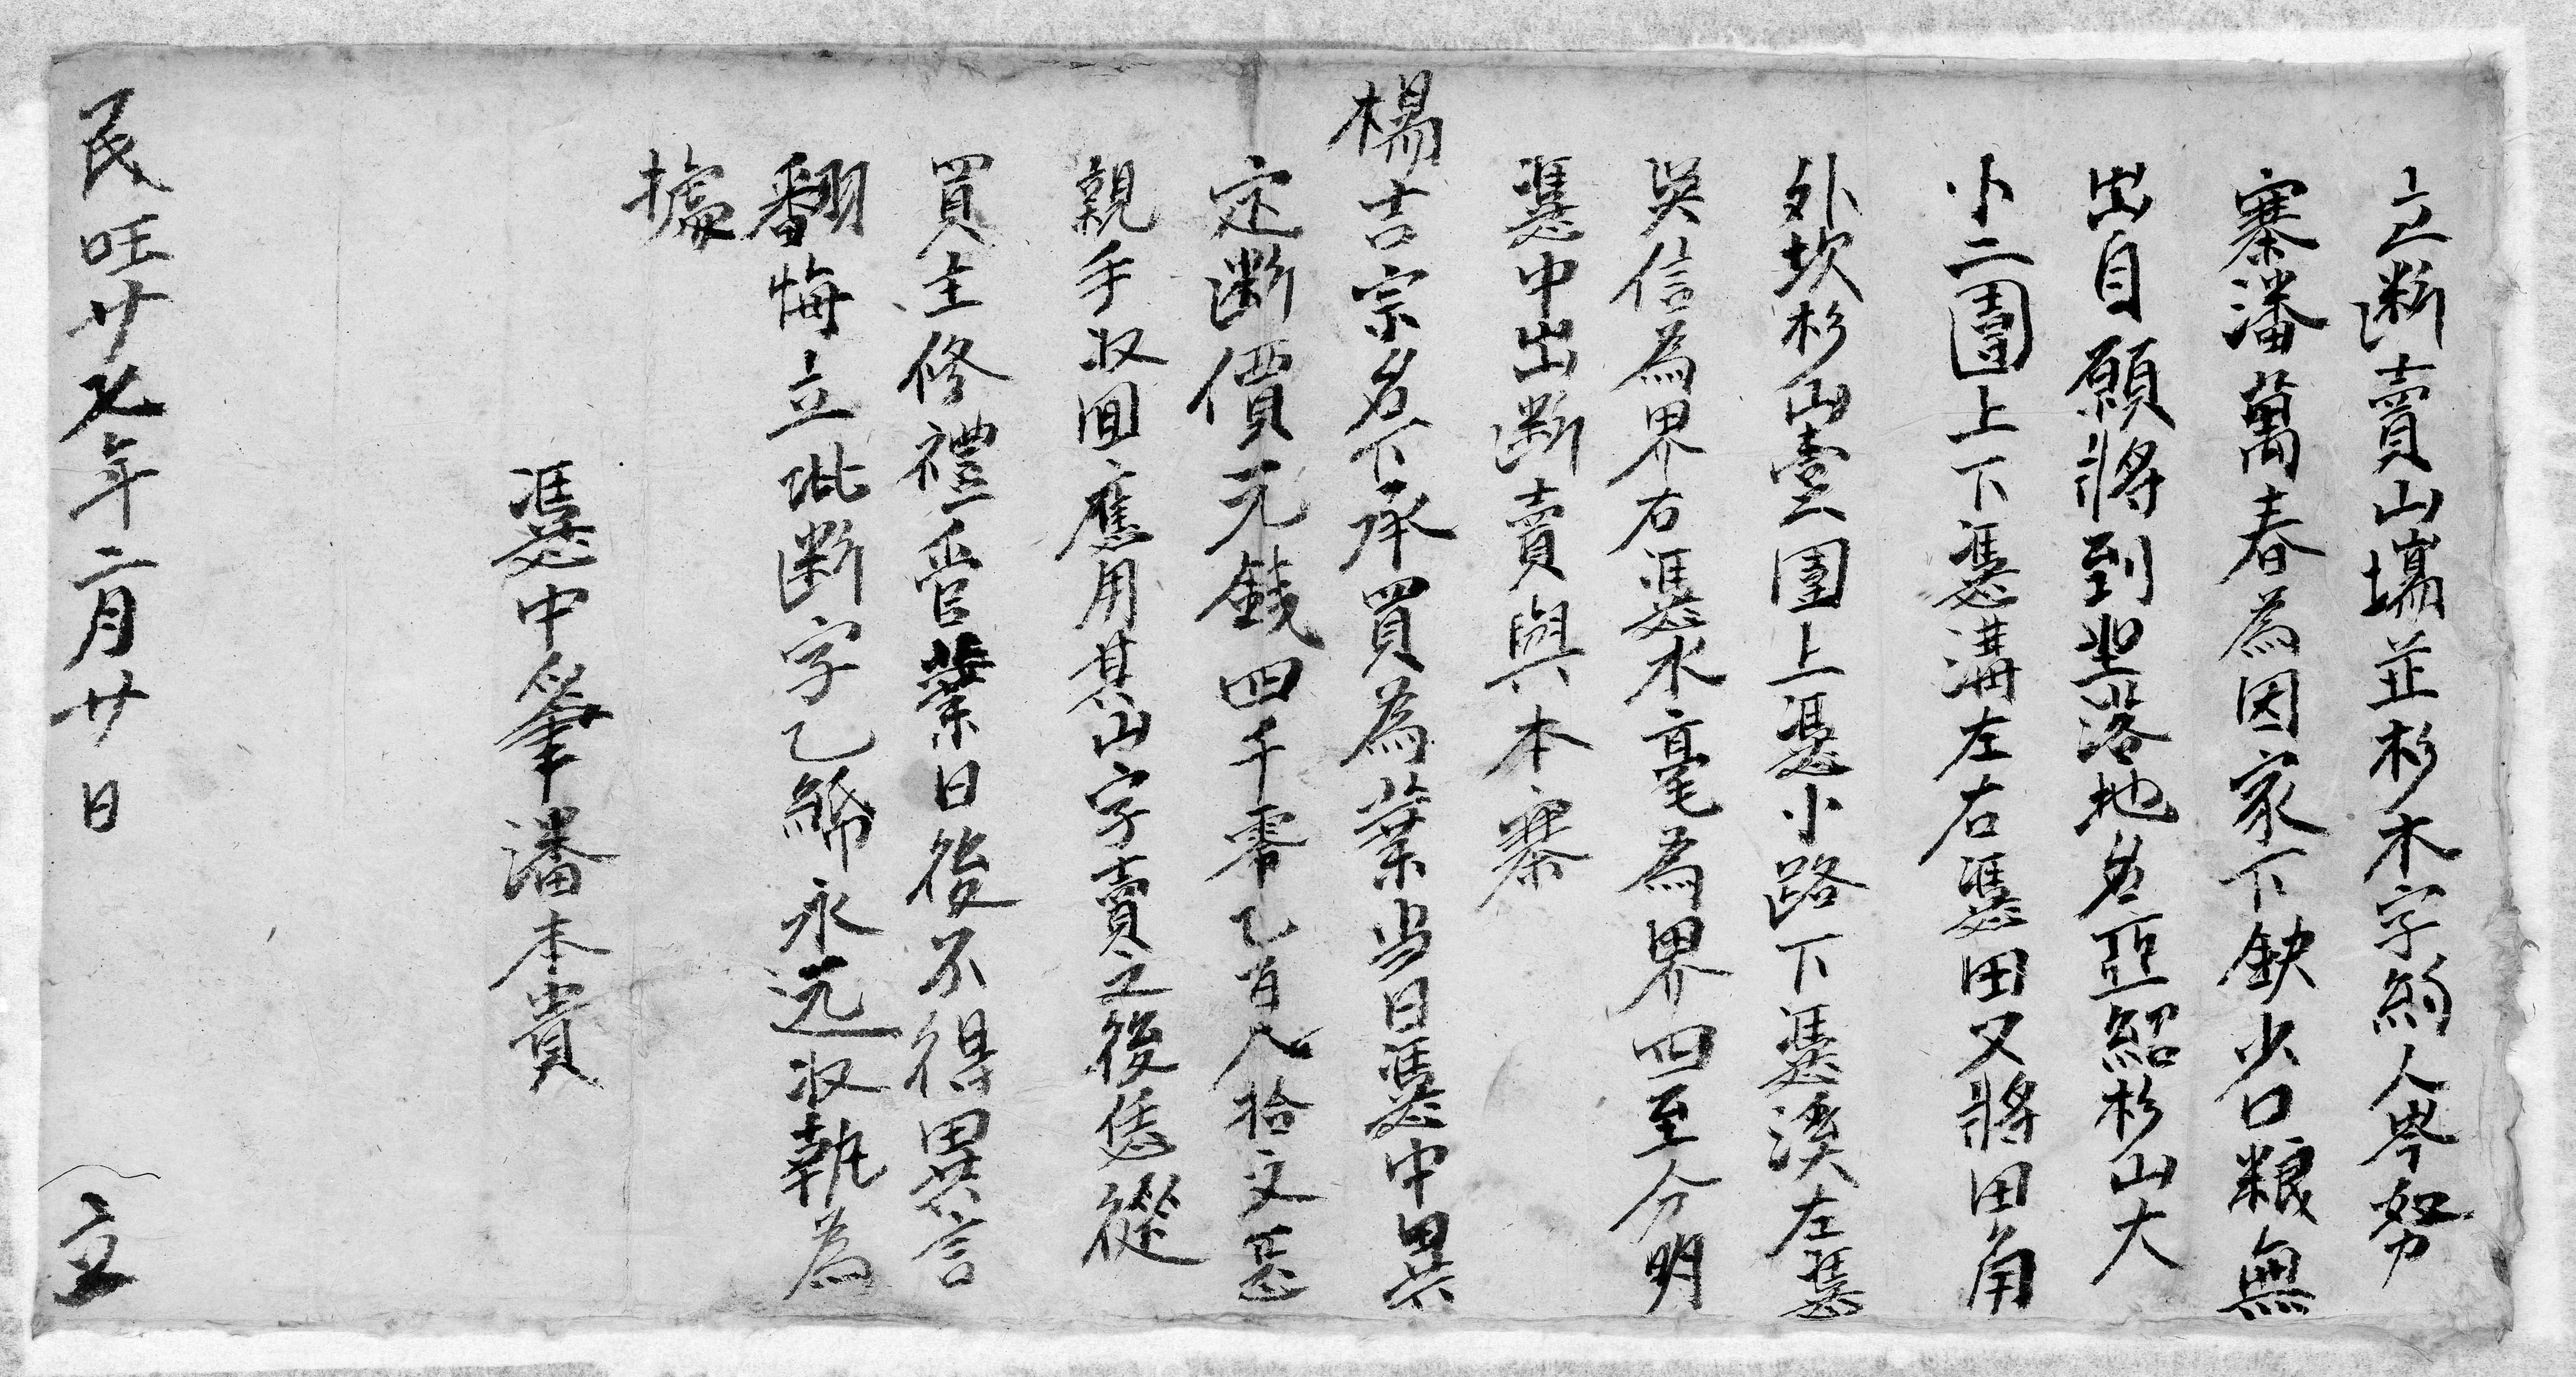 立断賣山塲並杉木字約人岑努
寨潘萬春為因家下缺少口粮無
出自願將到坐落地名亞紹杉山大
小二團上下慿溝左右慿田又將田角
外坎杉山壹團上慿小路下慿溪左慿
吳信為界右慿水毫為界四至分明
慿中出断賣與本寨
楊吉宗名下承買為業当日慿中異
定断價元錢四千零乙百八拾文正
親手收囬應用其山字賣之後恁從
買主修禮管業日後不得異言
翻悔立此断字乙䋛永远收執為
據
慿中筆潘本貴
民旺廿九年二月廿日 立